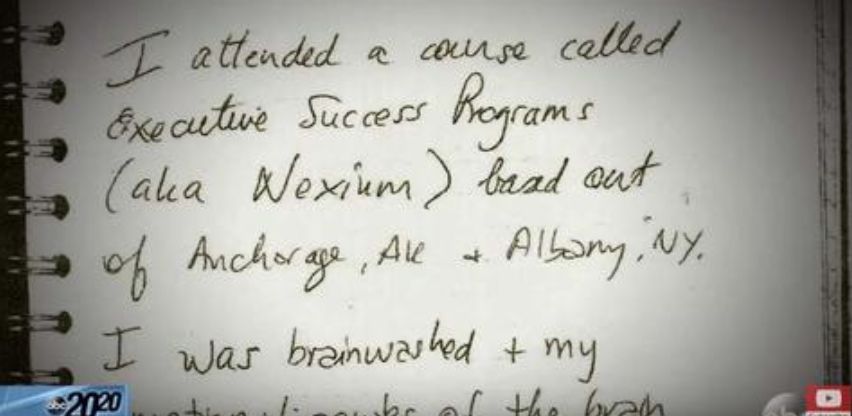 I attended a course called
Executive Success Programs
(aka Nexium) basd out
of Anchorage, AK + Albany, NY.
I was brainwashed + my
of the brain
abc 2020